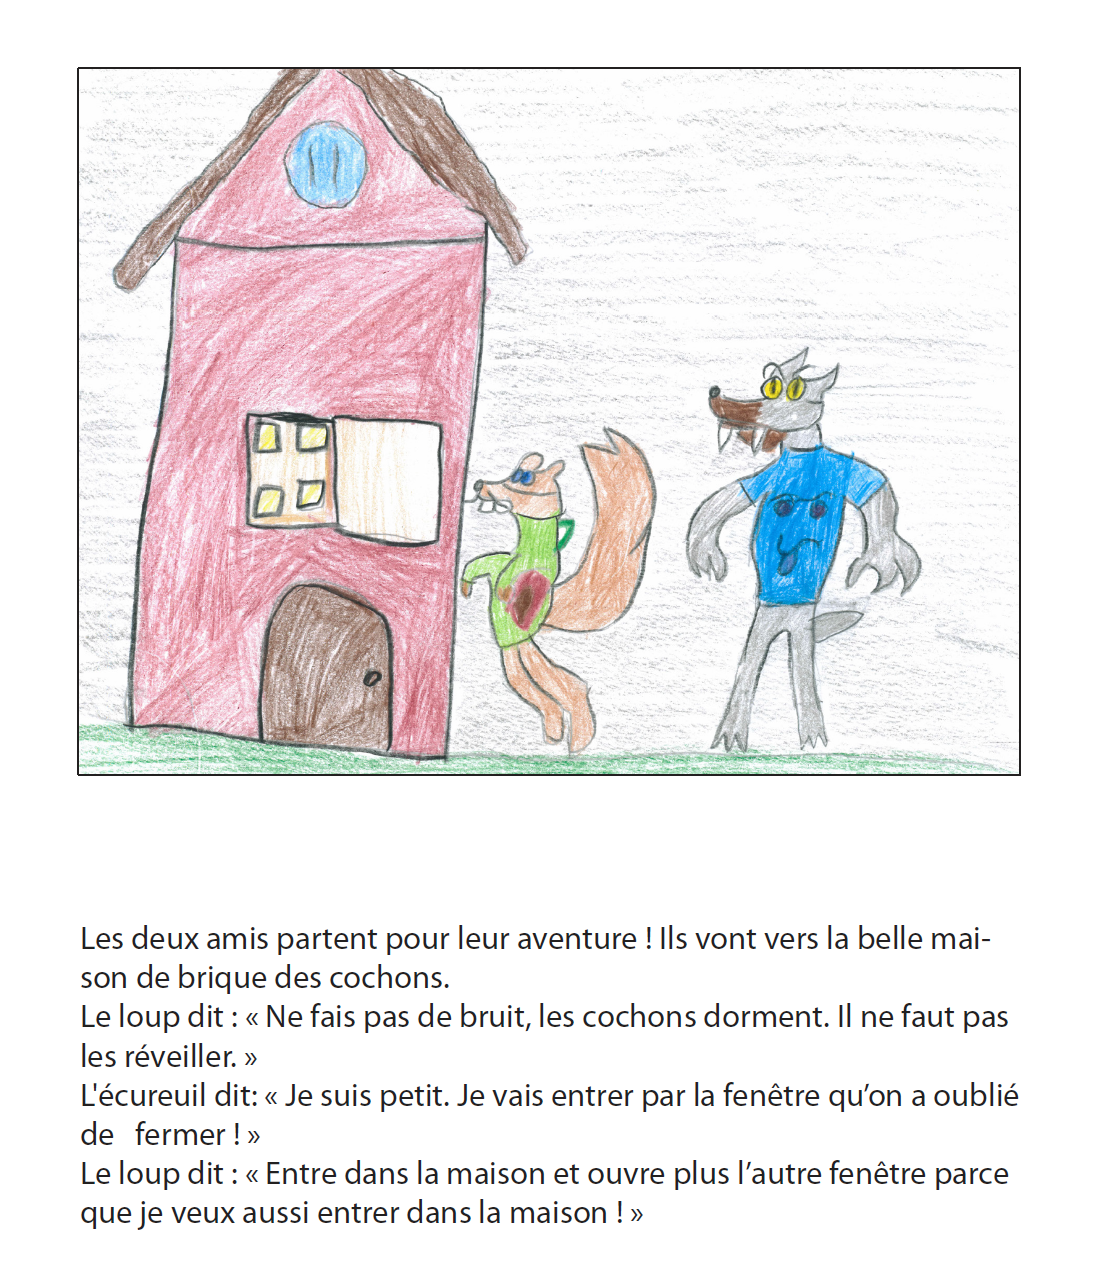 Les deux amis partent pour leur aventure ! Ils vont vers la belle mai-
son de brique des cochons.
Le loup dit : « Ne fais pas de bruit, les cochons dorment. Il ne faut pas
les réveiller. »
L'écureuil dit: « Je suis petit. Je vais entrer par la fenêtre qu’on a oublié
de   fermer ! »
Le loup dit : « Entre dans la maison et ouvre plus l’autre fenêtre parce
que je veux aussi entrer dans la maison ! »